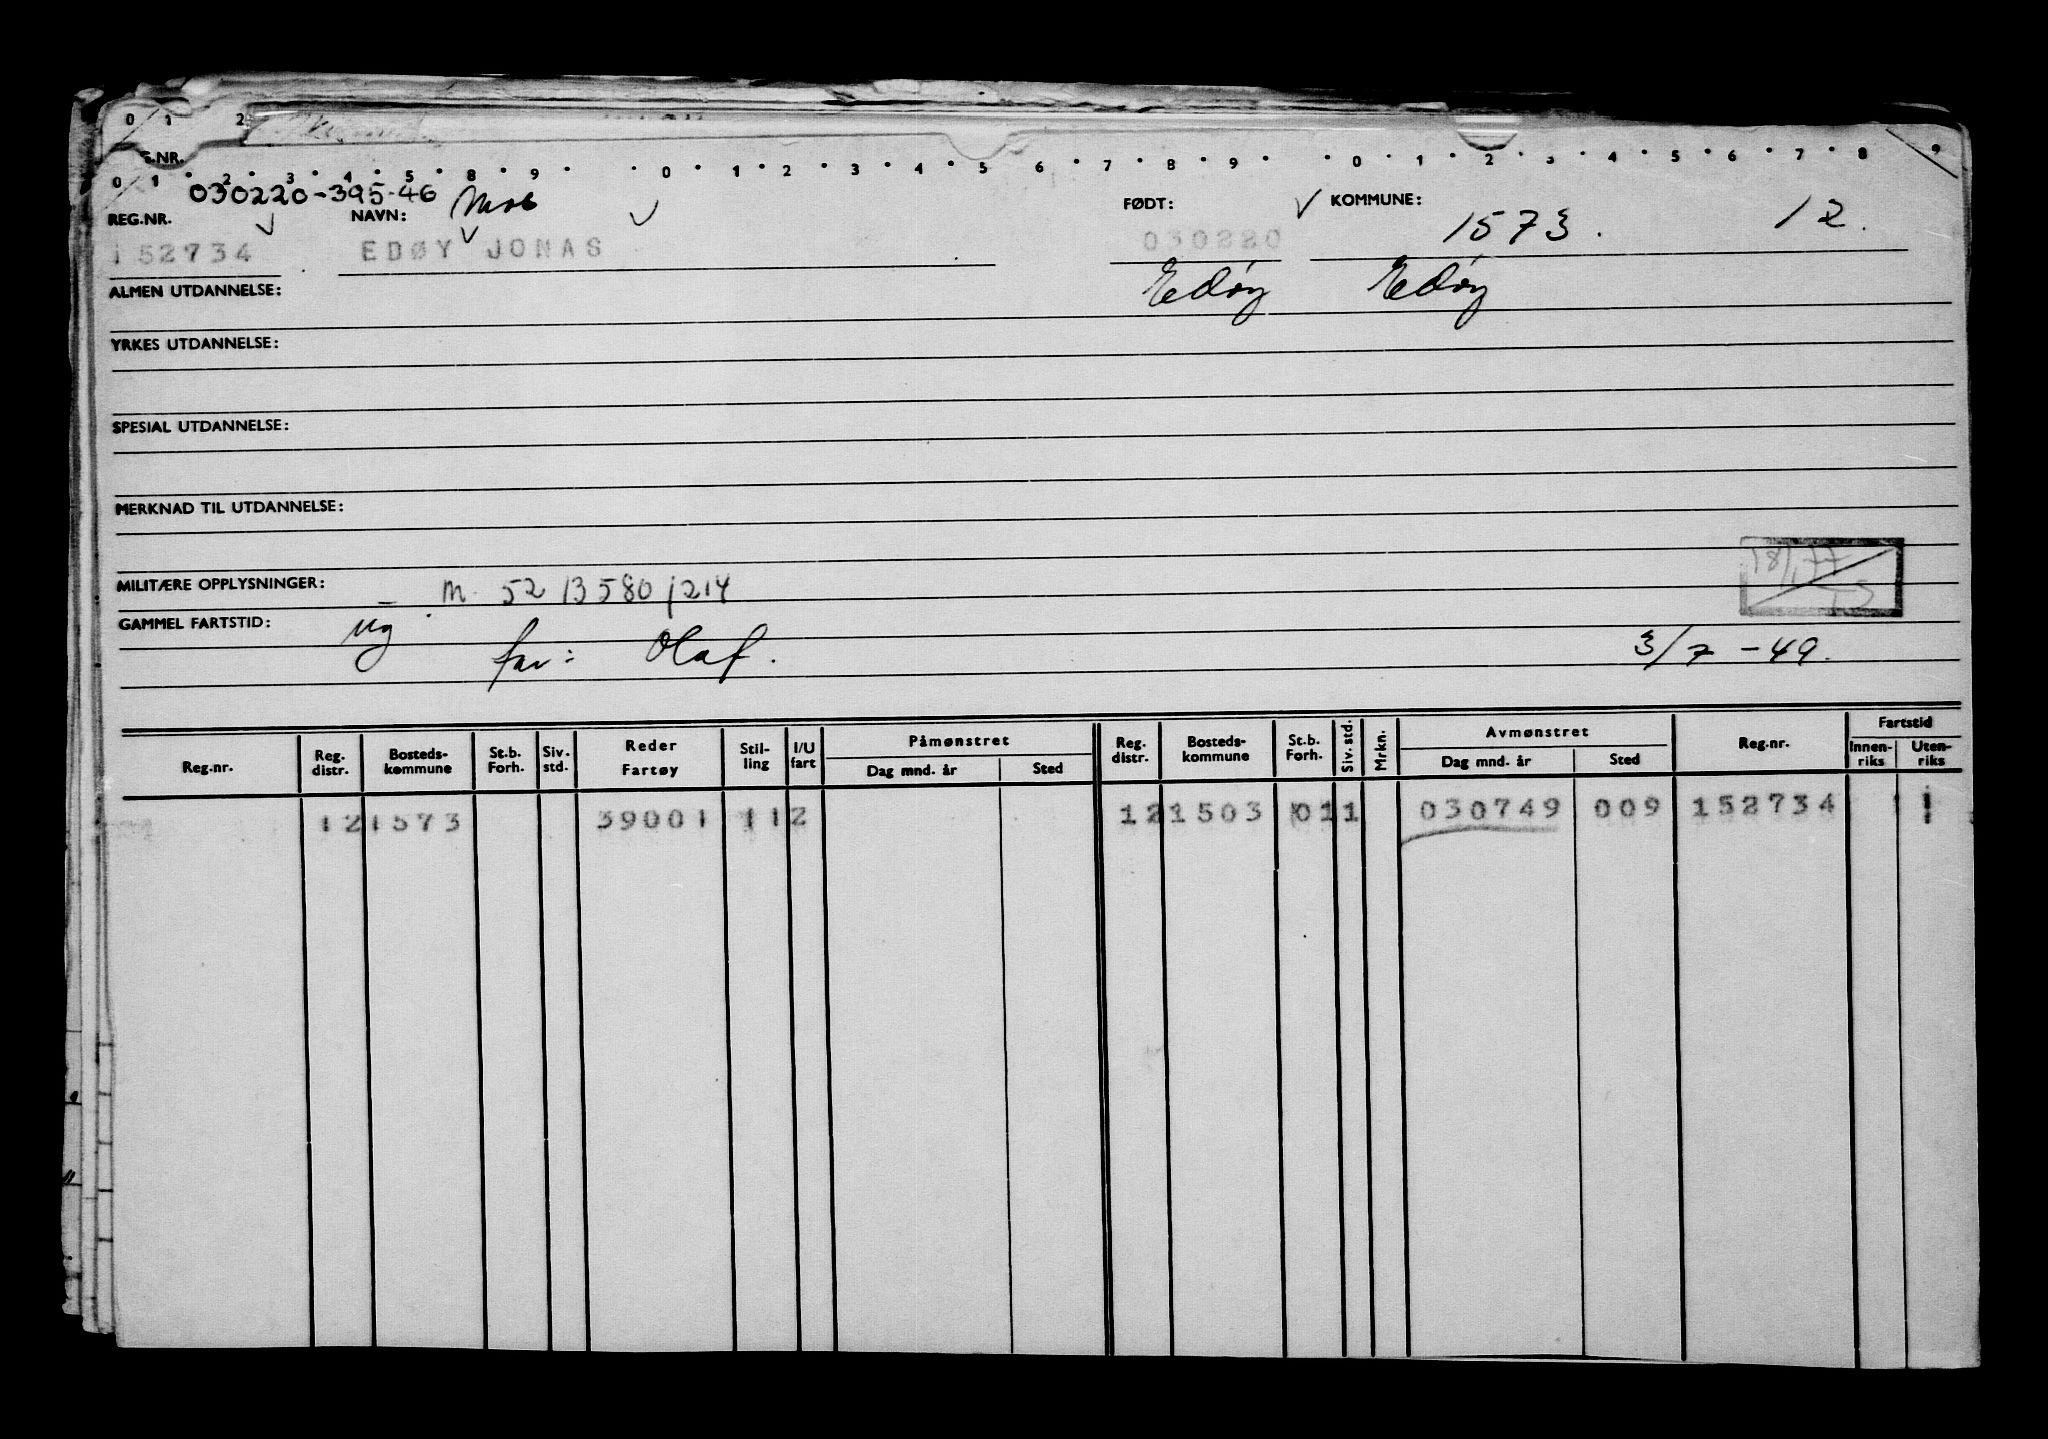 0 1 2
G.NR.
0 1 2 3 4 5 8 9 0 1 2 3 4 5 6 7 8 9 0 1 2 3 4 5 6 7 8 9
030220-395-46
REG.NR. NAVN: FØDT: KOMMUNE: 1573. 12.
152734 EDØY JONAS 030220
ALMEN UTDANNELSE: Edøy Edøy
YRKES UTDANNELSE:
SPESIAL UTDANNELSE:
MERKNAD TIL UTDANNELSE:
MILITÆRE OPPLYSNINGER: - M. 52 13580/214
GAMMEL FARTSTID: ug far: Olaf. 3/7-49.
Reg.nr. Reg. distr. Bosteds- kommune St.b. Forh. Siv. std. Reder Fartøy Stil- ling I/U fart Påmønstret Dag mnd. år Sted Reg. distr. Bosteds- kommune St.b. Forh. Siv. std. Mrkn. Avmønstret Dag mnd. år Sted Reg.nr. Fartstid Innen- riks Uten- riks
12 1573 39001 11 2 12 1503 01 1 030749 009 152734 1